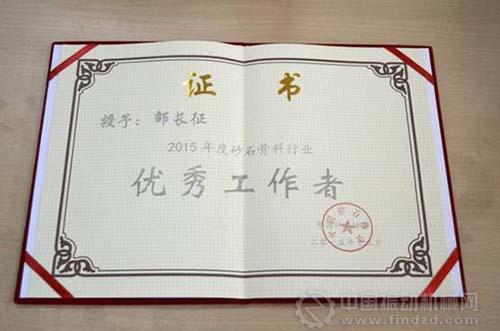 证 书
授予：邹长征
2015年度砂石骨料行业
优秀工作者
中国振动机械网
www.findzd.com